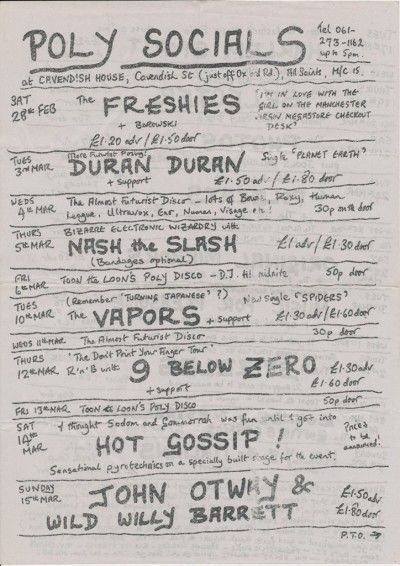 POLY SOCIALS
Tel 061-
273-1162
up to 5pm.
at CAVENDISH HOUSE, Cavendish St (just off Oxford Rd.), All Saints, M/c 15.
SAT
28th FEB
The FRESHIES
+ BOROWSKI
£1.20 adv / £1.50 door
'I'M IN LOVE WITH THE
GIRL ON THE MANCHESTER
VIRGIN MEGASTORE CHECKOUT
DESK'
TUES
3rd MAR
(More Futurist Posing!)
DURAN DURAN
Single 'PLANET EARTH'
+ Support
£1.50 adv / £1.80 door
WEDS
4th MAR
The Almost Futurist Disco - lots of Bowie, Roxy, Human
League, Ultravox, Eno, Numan, Visage etc!
30p on the door
THURS
5th MAR
BIZARRE ELECTRONIC WIZARDRY with
NASH the SLASH
(Bandages optional)
£1 adv / £1.30 door
FRI
6th MAR
TOON the LOON'S POLY DISCO - D.J. till midnite
50p door
TUES
10th MAR
(Remember 'TURNING JAPANESE'?)
Now Single 'SPIDERS'
The VAPORS + support
£1.30 adv / £1.60 door
WEDS 11th MAR
The Almost Futurist Disco
30p door
THURS
12th MAR
'The Don't Print Your Finger Tour'
R'n'B with 9 BELOW ZERO
+ support
£1.30 adv
£1.60 door
FRI 13th MAR
TOON the LOON'S POLY DISCO
50p door
SAT
14th
MAR
I thought Sodom and Gomorrah was fun until I got into
HOT GOSSIP!
Sensational pyrotechnics on a specially built stage for the event.
Prices
to be
announced!
SUNDAY
15th MAR
JOHN OTWAY &
WILD WILLY BARRETT
£1.50 adv
£1.80 door
P.T.O. →